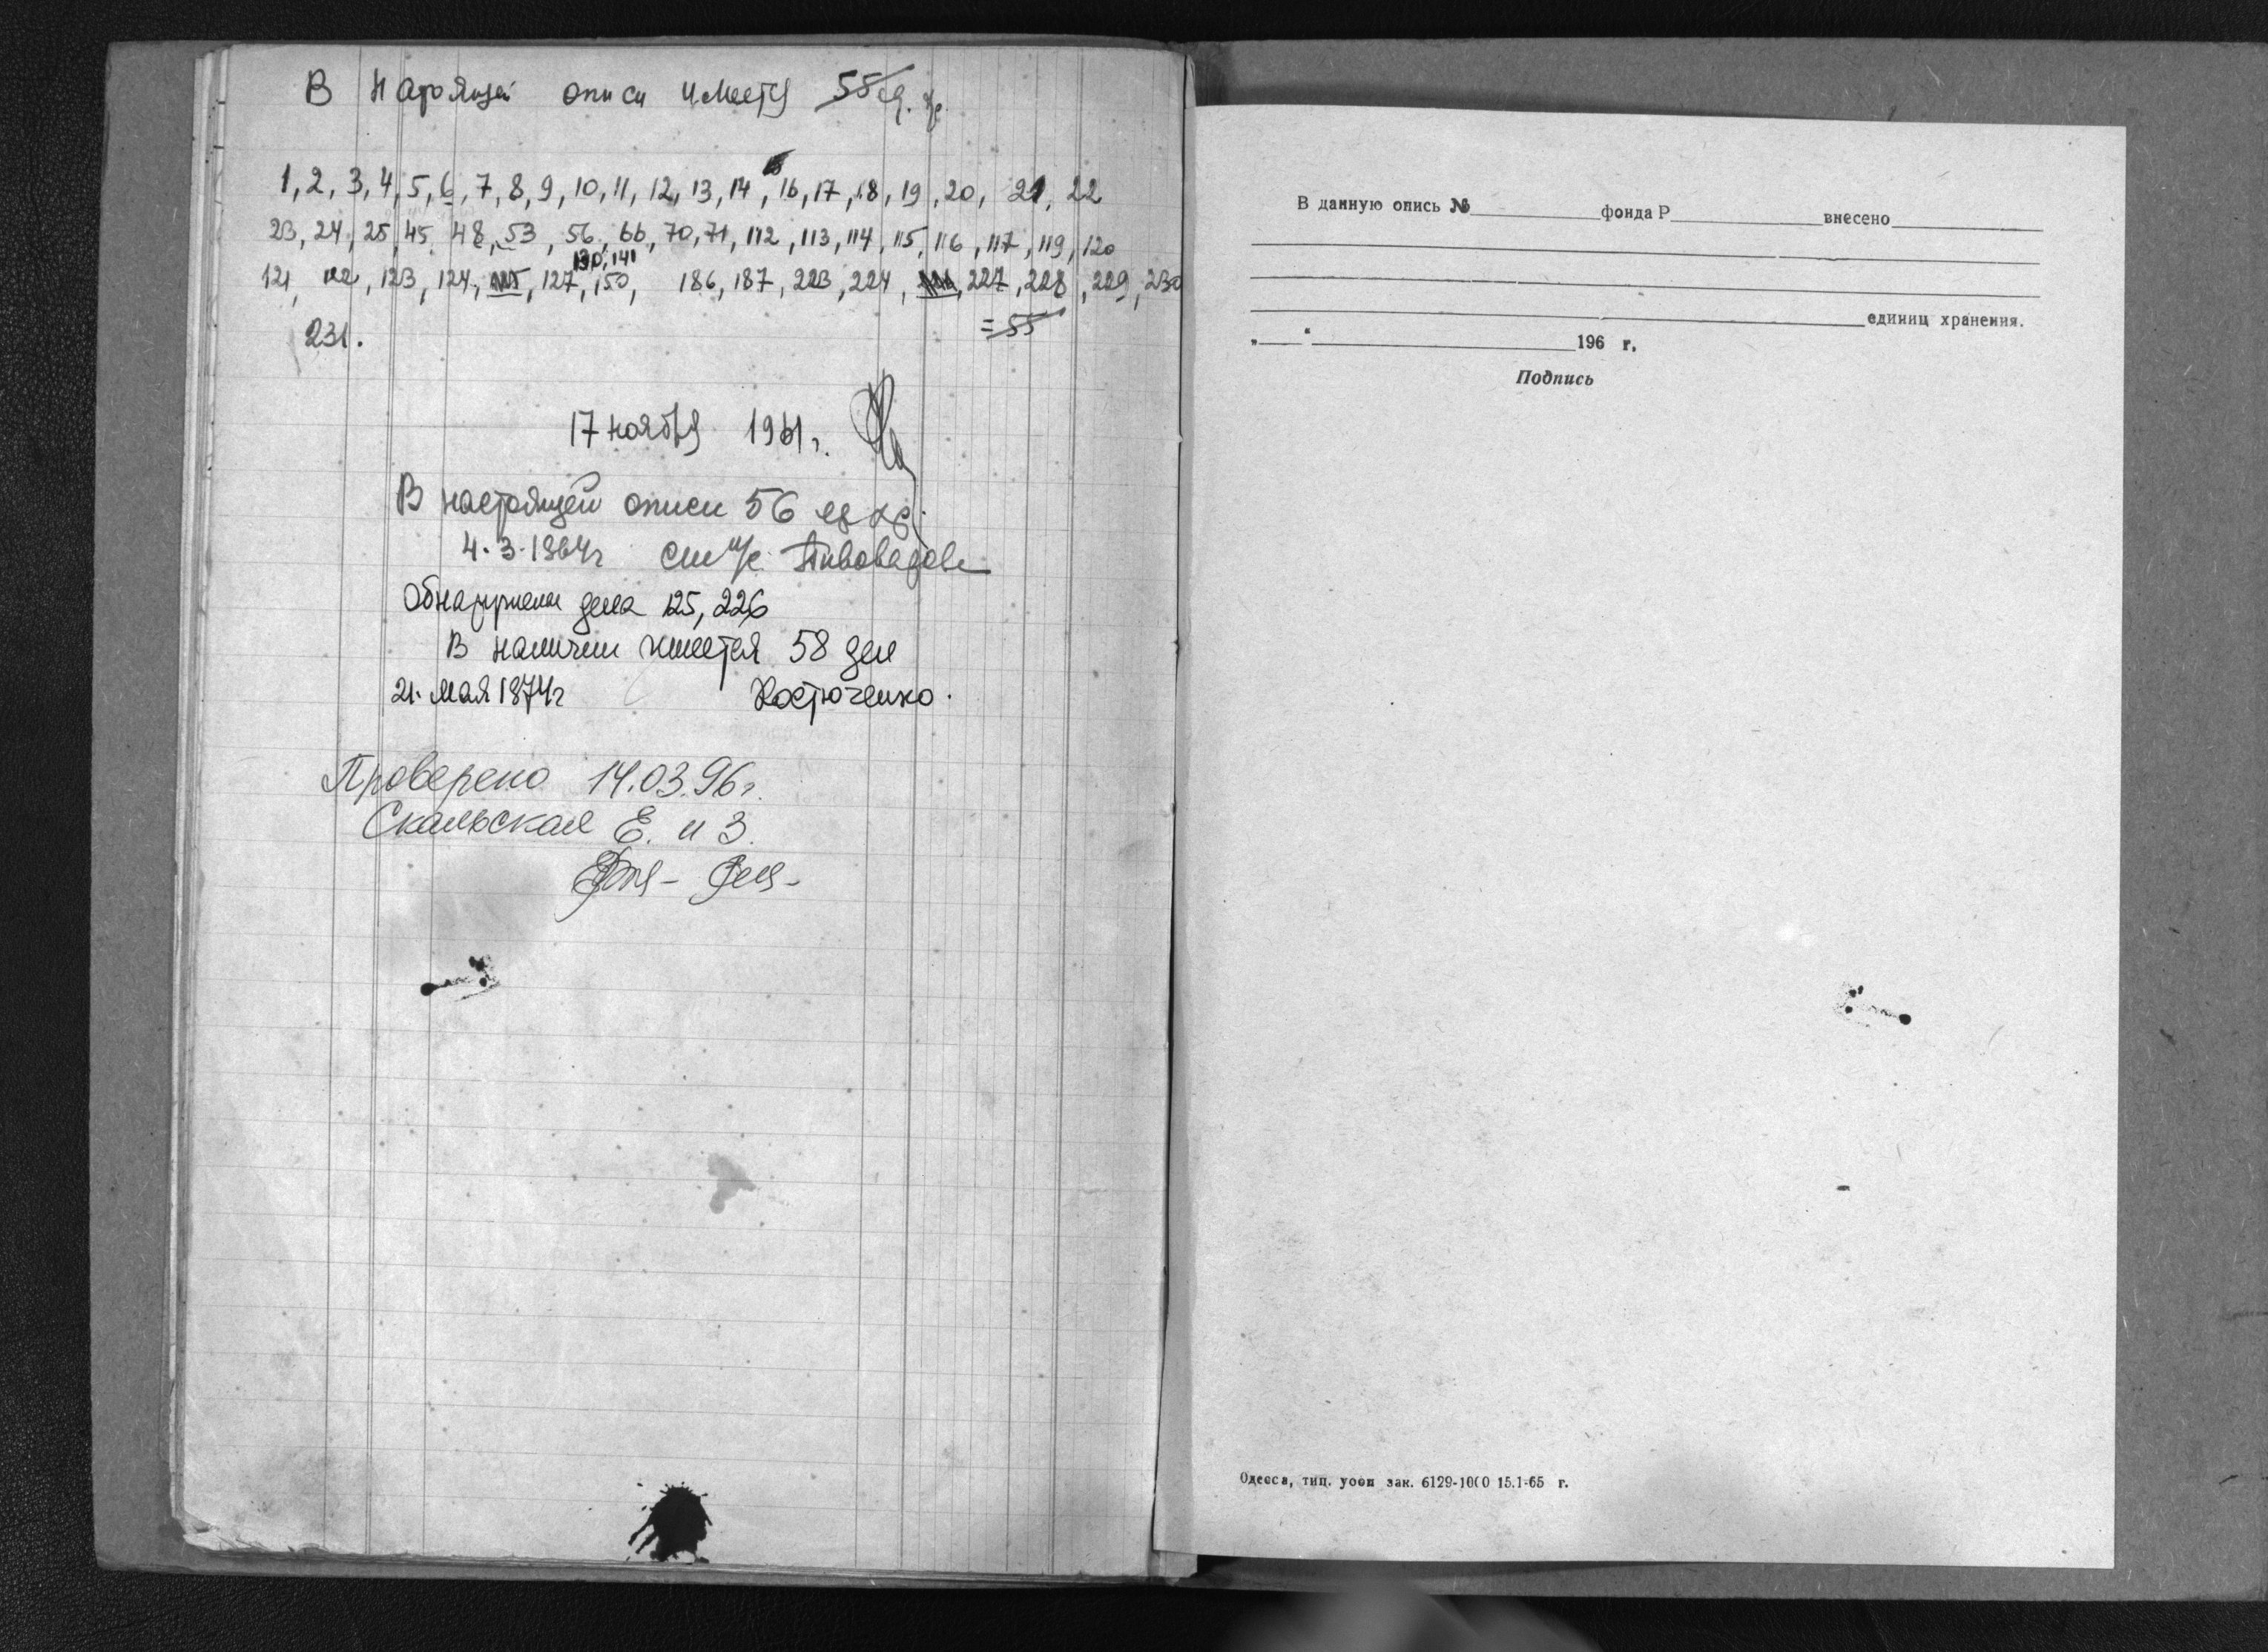 В настоящей описи имеется 55 ед. хр.
1, 2, 3, 4, 5, 6, 7, 8, 9, 10, 11, 12, 13, 14, 16, 17, 18, 19, 20, 21, 22
23, 24, 25, 45, 48, 53, 56, 66, 70, 71, 112, 113, 114, 115, 116, 117, 119, 120
130, 141
121, 122, 123, 124, 125, 127, 150, 186, 187, 223, 224, 227, 228, 229, 230
231.
=55
17 ноября 1961 г.
В настоящей описи 56 ед хр.
4.3.1964г Пивоварова
Обнаружены дела 125, 226
В наличии имеется 58 дел
21. мая 1974г Костюченко.
Проверено 14.03.96г.
Скальская Е. и З.
В данную опись № фонда Р внесено
единиц хранения.
„ “ 196 г.
Подпись
Одесса, тип. уооп зак. 6129-1000 15.1-65 г.